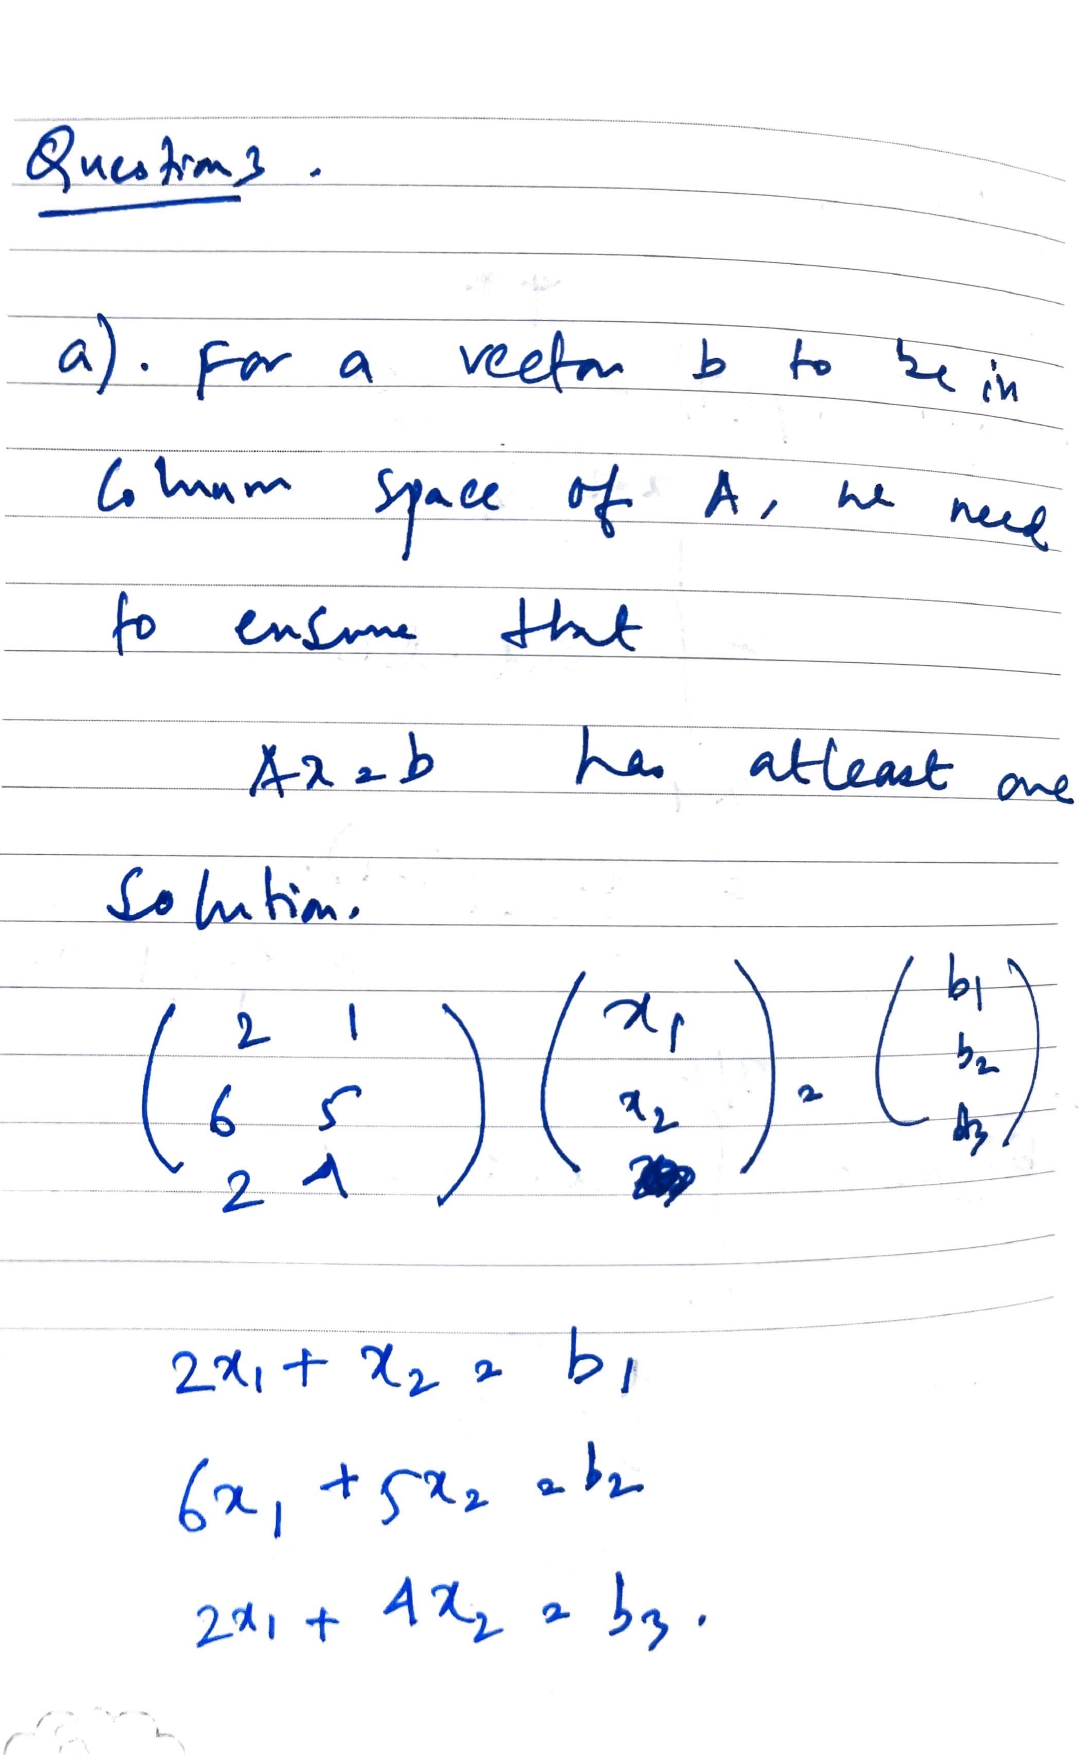 Question 3.
a). For a vector b to be in
Column space of A, we need
to ensure that
Ax = b has atleast one
Solution.
( 2 1 ) ( x1 ) = ( b1 )
( 6 5 ) ( x2 ) ( b2 )
( 2 4 ) ( b3 )
2x1 + x2 = b1
6x1 + 5x2 = b2
2x1 + 4x2 = b3.